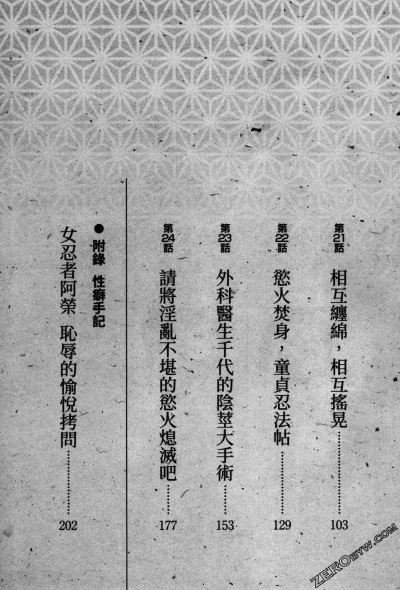 第21話 相互纏綿，相互搖晃………… 103
第22話 慾火焚身，童貞忍法帖………… 129
第23話 外科醫生千代的陰莖大手術……… 153
第24話 請將淫亂不堪的慾火熄滅吧…… 177
● 附錄 性癖手記
女忍者阿榮 恥辱的愉悅拷問………… 202
ZEROBYW.COM